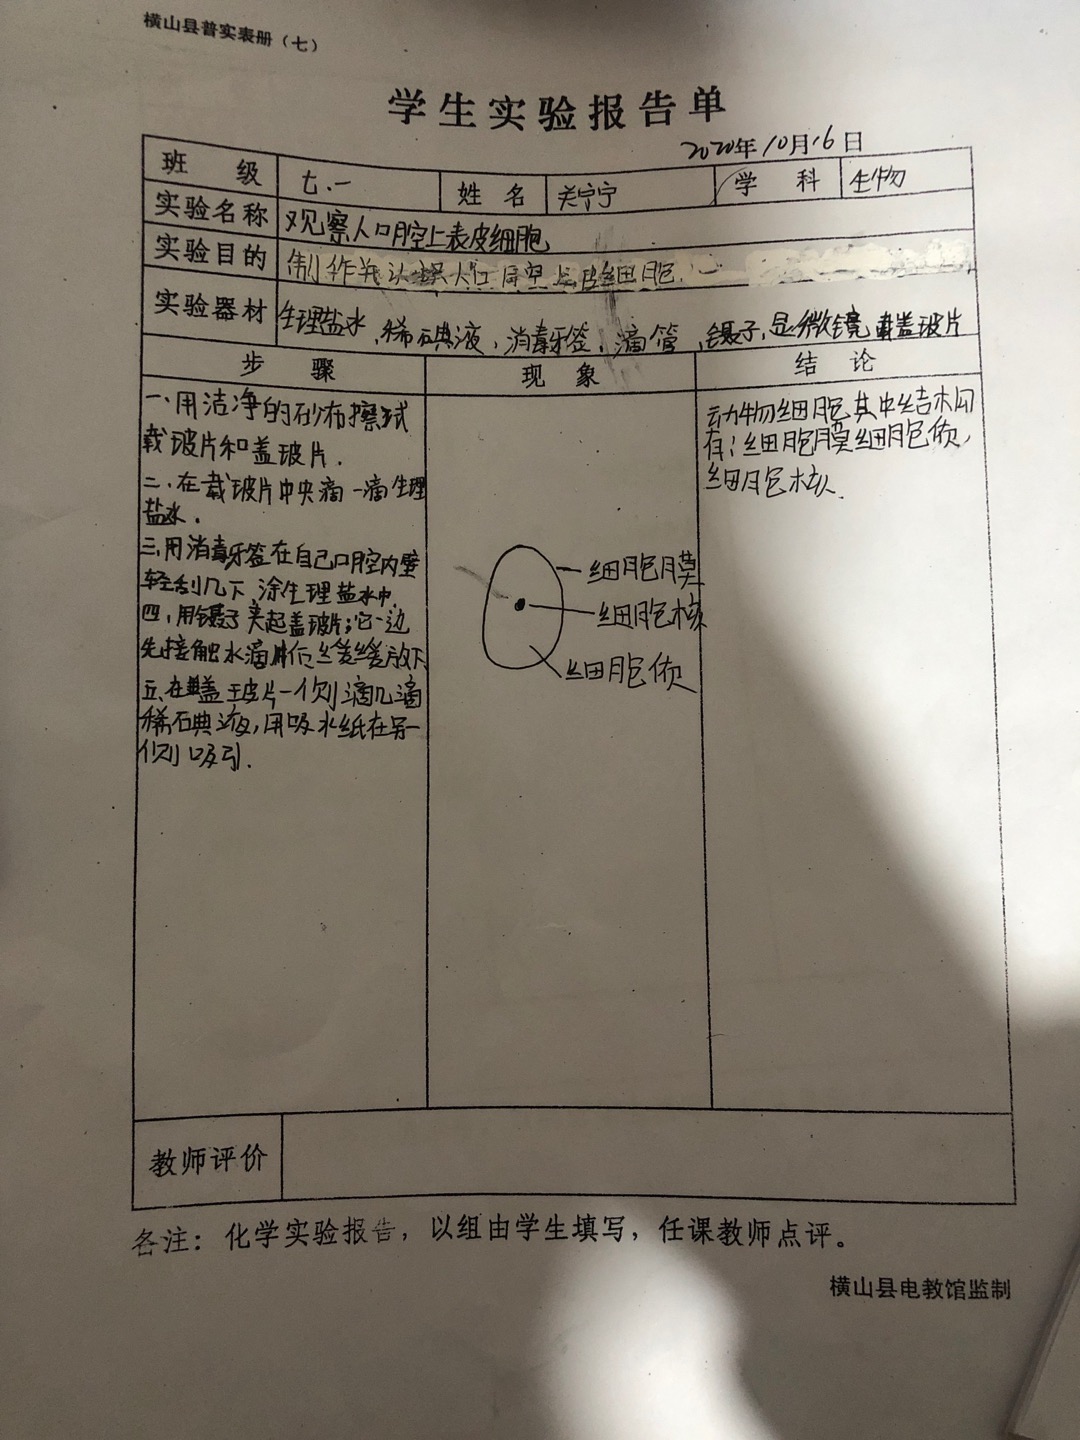 横山县普实表册（七）
学生实验报告单
2020年10月16日
班 级 七.一 姓 名 关宁宁 学 科 生物
实验名称 观察人口腔上表皮细胞
实验目的 制作并认识人口腔上皮细胞.
实验器材 生理盐水,稀碘液,消毒牙签,滴管,镊子,显微镜 载盖玻片
步 骤 现 象 结 论
一.用洁净的砂布擦拭
载玻片和盖玻片.
二.在载玻片中央滴一滴生理
盐水.
三,用消毒牙签在自己口腔内壁
轻刮几下,涂生理盐水中.
四,用镊子夹起盖玻片;它一边
先接触水滴 后缓缓放下
五,在盖玻片一侧滴几滴
稀碘液,用吸水纸在另一
侧吸引.
细胞膜
细胞核
细胞质
动物细胞其中结构
有:细胞膜细胞质,
细胞核.
教师评价
各注：化学实验报告，以组由学生填写，任课教师点评。
横山县电教馆监制